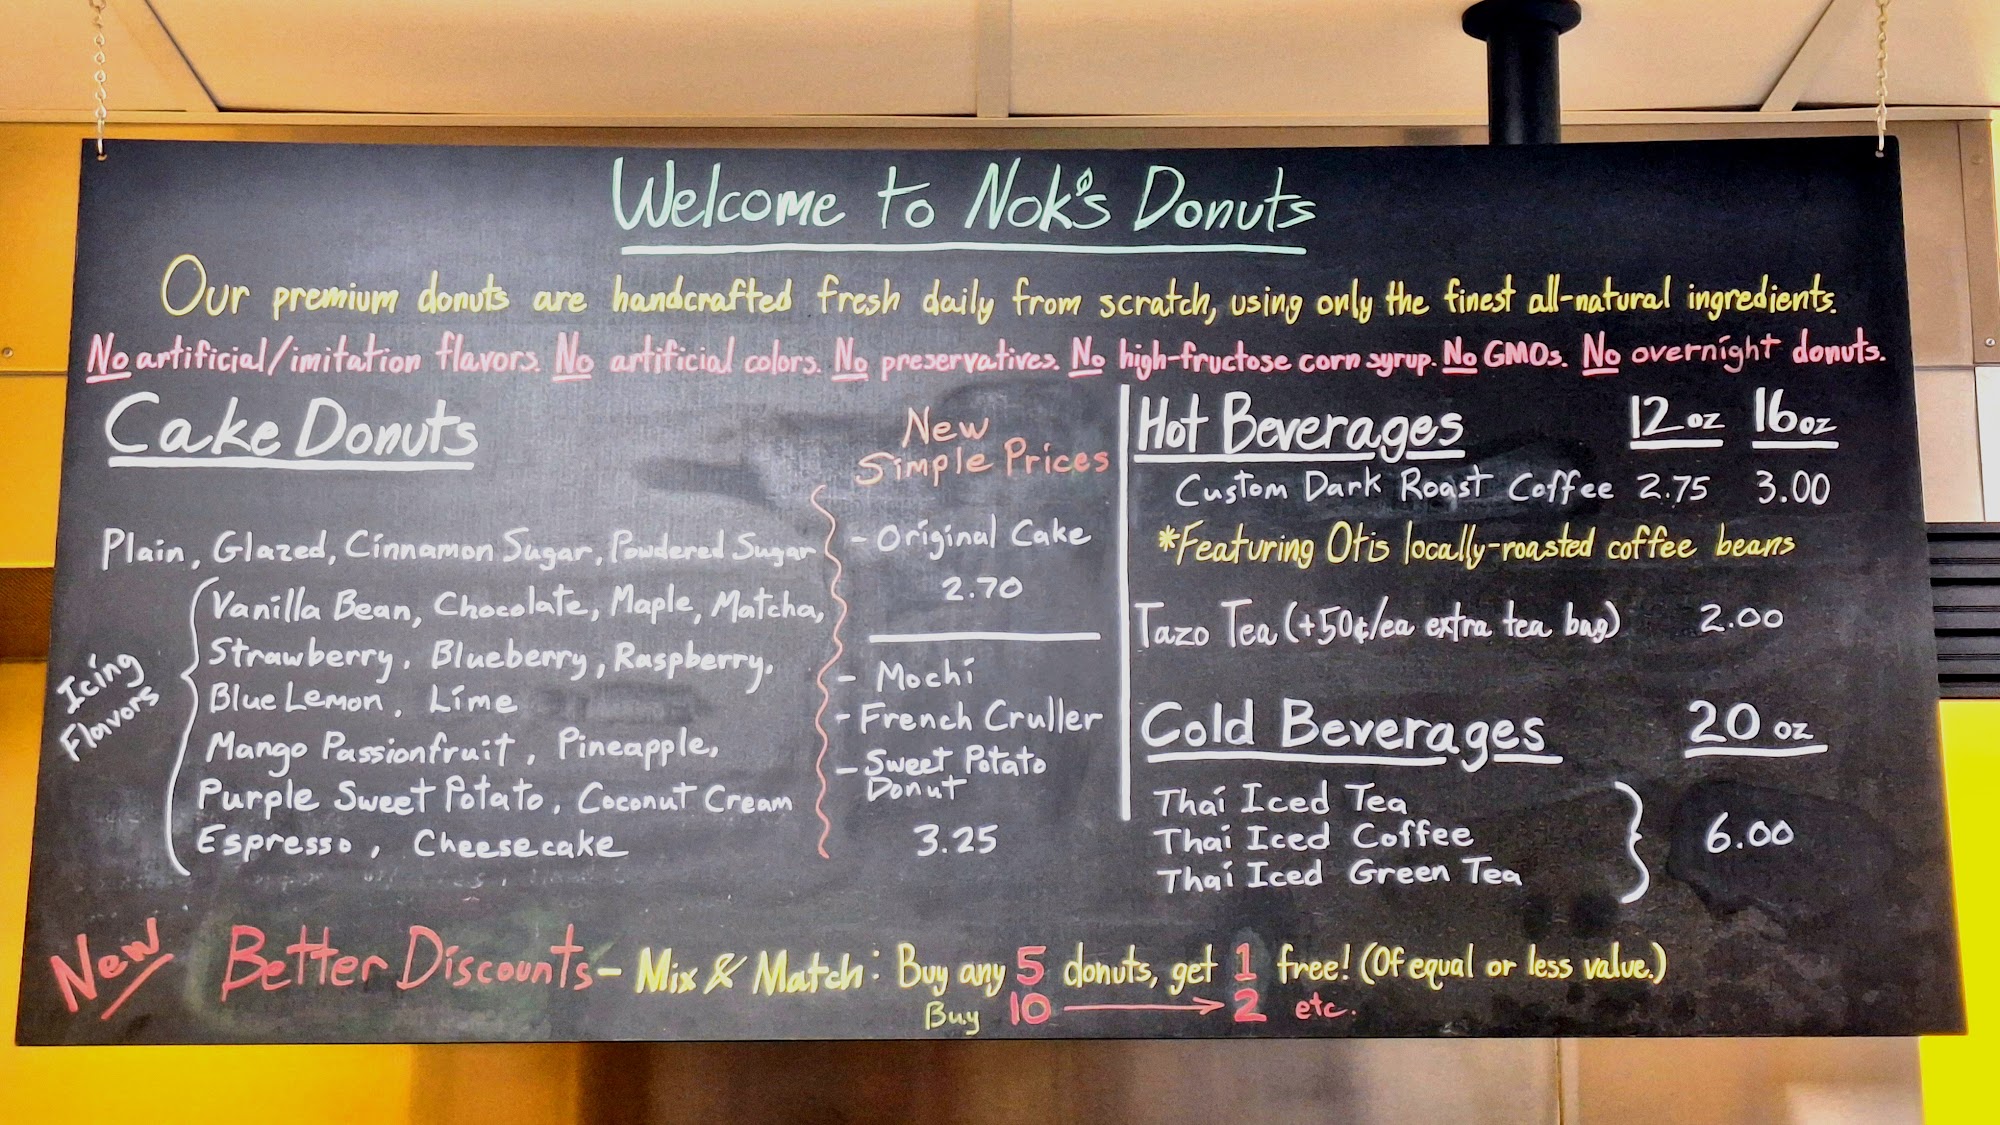 Welcome to Nok's Donuts
Our premium donuts are handcrafted fresh daily from scratch, using only the finest all-natural ingredients.
No artificial/imitation flavors. No artificial colors. No preservatives. No high-fructose corn syrup. No GMOs. No overnight donuts.
Cake Donuts
Plain, Glazed, Cinnamon Sugar, Powdered Sugar
Icing
Flavors
Vanilla Bean, Chocolate, Maple, Matcha,
Strawberry, Blueberry, Raspberry,
Blue Lemon, Lime
Mango Passionfruit, Pineapple,
Purple Sweet Potato, Coconut Cream
Espresso, Cheesecake
New
Simple Prices
- Original Cake
2.70
- Mochi
- French Cruller
- Sweet Potato
Donut
3.25
Hot Beverages 12 oz 16 oz
Custom Dark Roast Coffee 2.75 3.00
*Featuring Otis locally-roasted coffee beans
Tazo Tea (+50¢/ea extra tea bag) 2.00
Cold Beverages 20 oz
Thai Iced Tea
Thai Iced Coffee 6.00
Thai Iced Green Tea
New Better Discounts - Mix & Match: Buy any 5 donuts, get 1 free! (Of equal or less value.)
Buy 10 → 2 etc.